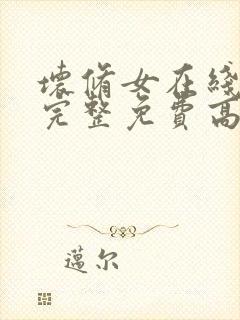 壞脩女在綫
完整免費高
邁尔